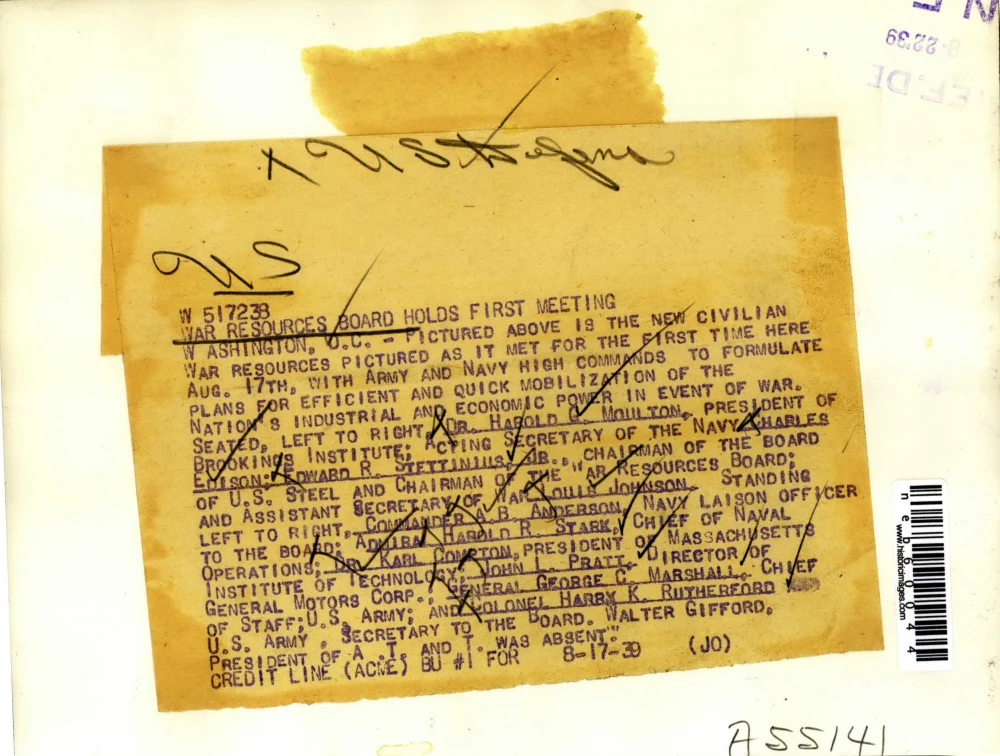 8-22'39
EF. DE
X US Defense
US
W 517238
WAR RESOURCES BOARD HOLDS FIRST MEETING
WASHINGTON, D.C. - PICTURED ABOVE IS THE NEW CIVILIAN
WAR RESOURCES PICTURED AS IT MET FOR THE FIRST TIME HERE
AUG. 17TH, WITH ARMY AND NAVY HIGH COMMANDS TO FORMULATE
PLANS FOR EFFICIENT AND QUICK MOBILIZATION OF THE
NATION'S INDUSTRIAL AND ECONOMIC POWER IN EVENT OF WAR.
SEATED, LEFT TO RIGHT, DR. HAROLD G. MOULTON, PRESIDENT OF
BROOKINGS INSTITUTE; ACTING SECRETARY OF THE NAVY CHARLES
EDISON; EDWARD R. STETTINIUS, JR., CHAIRMAN OF THE BOARD
OF U.S. STEEL AND CHAIRMAN OF THE WAR RESOURCES BOARD;
AND ASSISTANT SECRETARY OF WAR LOUIS JOHNSON. STANDING
LEFT TO RIGHT, COMMANDER A.B. ANDERSON, NAVY LAISON OFFICER
TO THE BOARD; ADMIRAL HAROLD R. STARK, CHIEF OF NAVAL
OPERATIONS; DR. KARL COMPTON, PRESIDENT OF MASSACHUSETTS
INSTITUTE OF TECHNOLOGY; JOHN L. PRATT, DIRECTOR OF
GENERAL MOTORS CORP.; GENERAL GEORGE C. MARSHALL, CHIEF
OF STAFF; U.S. ARMY; AND COLONEL HARRY K. RUTHERFORD
U.S. ARMY, SECRETARY TO THE BOARD. WALTER GIFFORD,
PRESIDENT OF A .T. AND T. WAS ABSENT.
CREDIT LINE (ACME) BU #1 FOR 8-17-39 (JO)
www.historicimages.com
neb60044
A55141